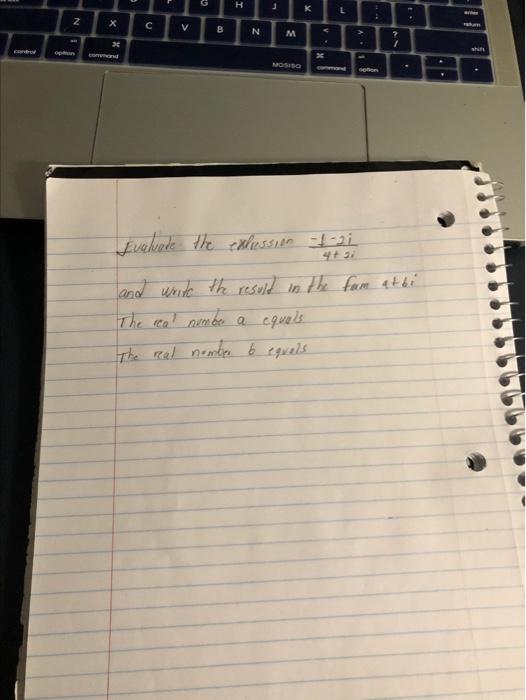 G H J K L : ;
enter
return
Z X C V B N M < , > . ? /
shift
control
alt
option
⌘
command
MOSISO
⌘
command
alt
option
Evaluate the expression -1-2i
4+2i
and write the result in the form a+bi
The real number a equals
The real number b equals